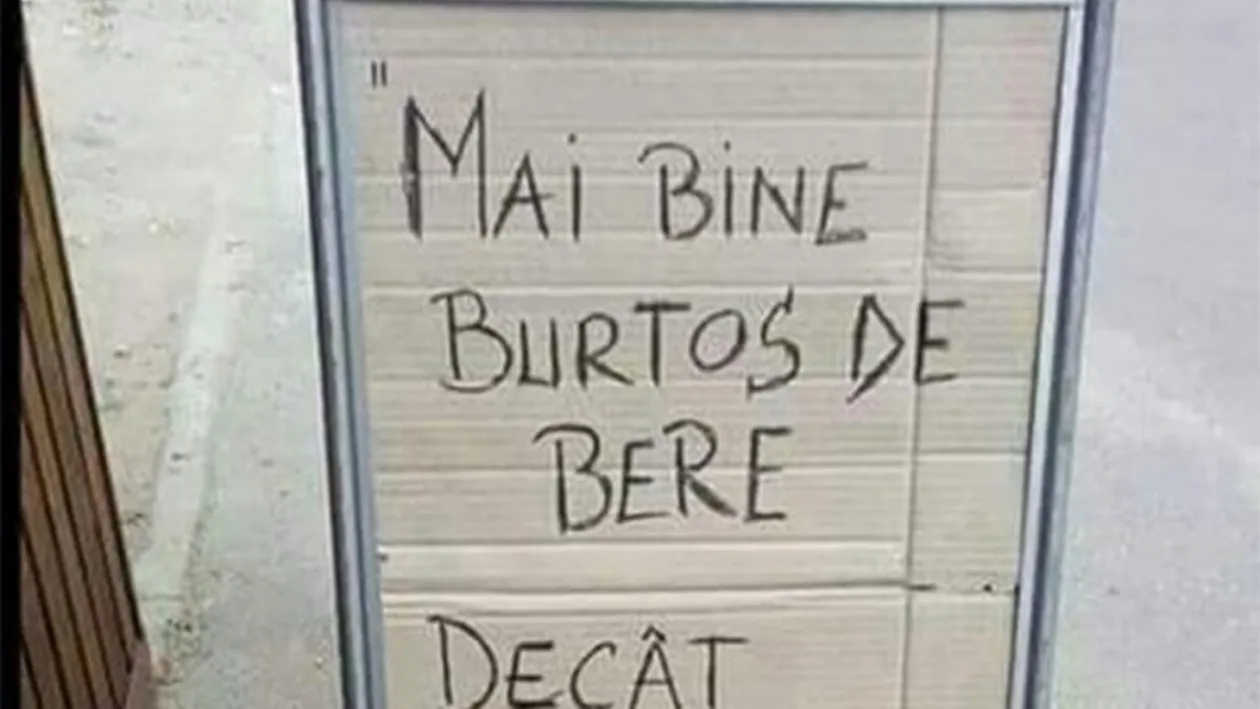 "MAI BINE
BURTOS DE
BERE
DECÂT